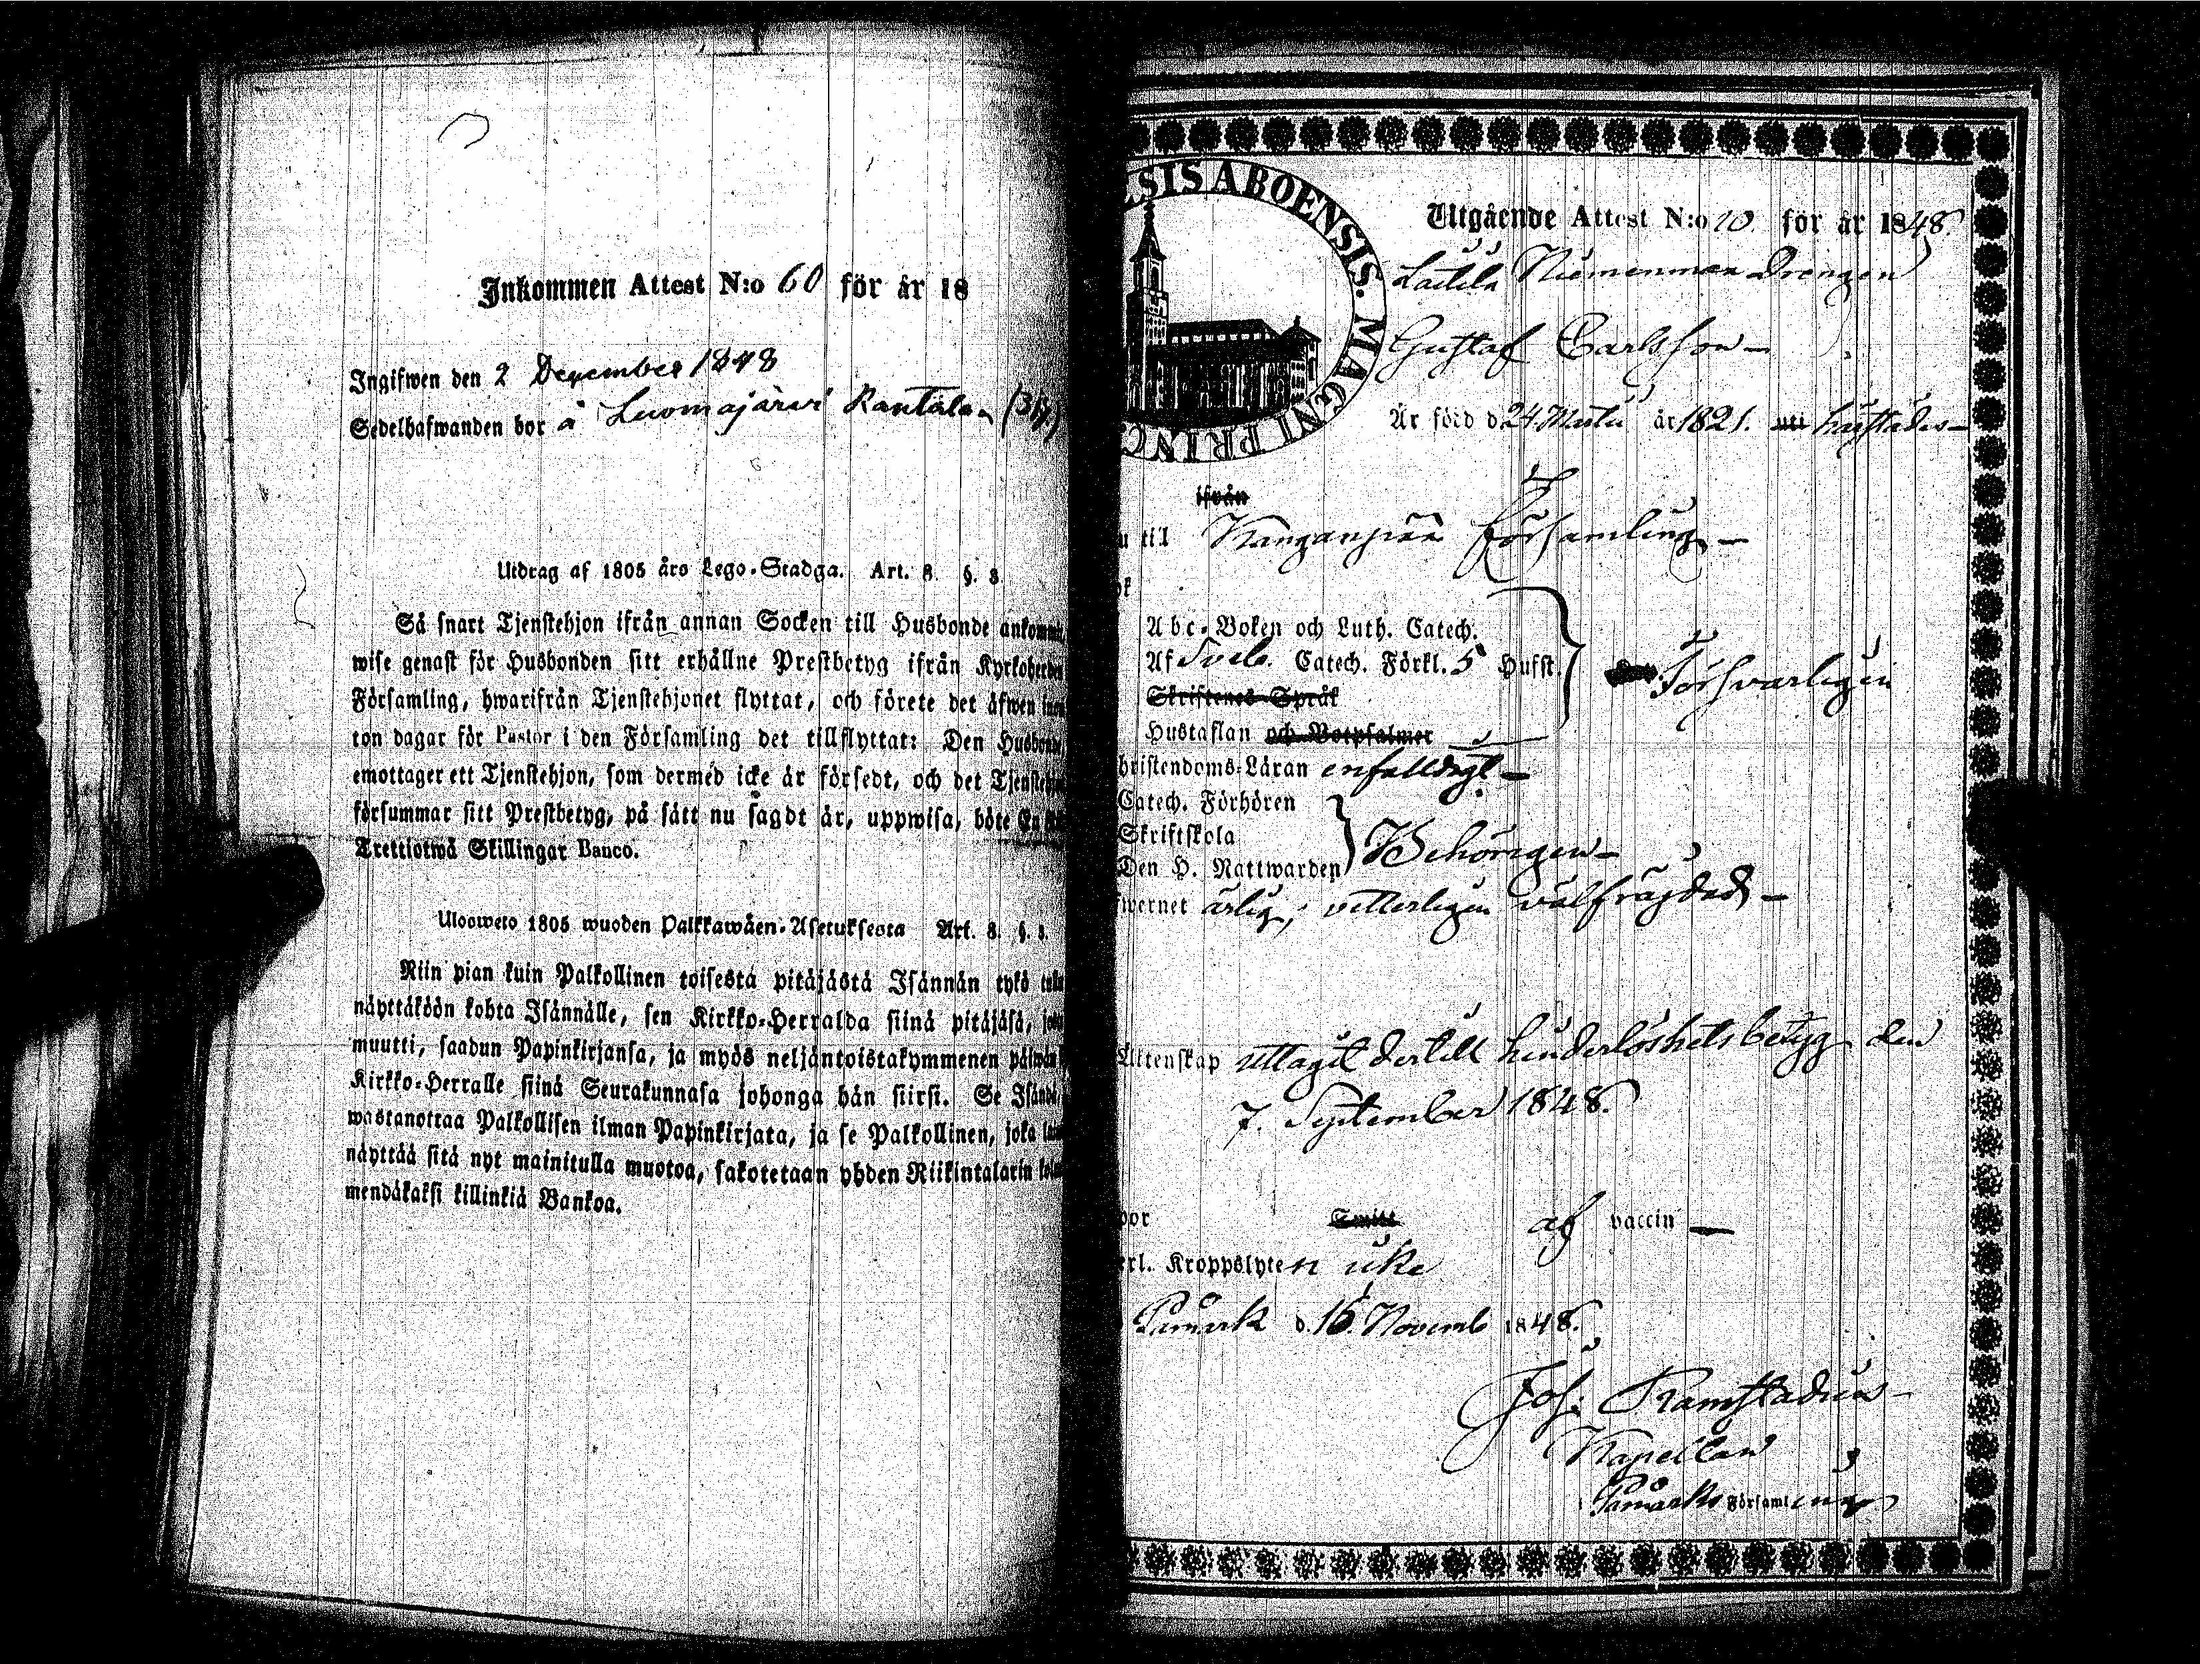 Inkommen Attest N:o 60 för år 18
Ingifwen den 2 December 1848
Sedelhafwanden bor å Luomajärvi Rantala
Utdrag af 1805 års Lego-Stadga. Art. 8. §. 3.
Så snart Tjenstehjon ifrån annan Socken till Husbonde
wise genast för Husbonden sitt erhållne Prestbetyg ifrån
Församling, hwarifrån Tjenstehjonet flyttat, och förete det äfwen
ton dagar för Pastor i den Församling det tillflyttat: Den
emottager ett Tjenstehjon, som dermed icke är försedt, och det
försummar sitt Prestbetyg, på sätt nu sagdt är, uppwisa, böte
Trettiotwå Skillingar Banco.
Ulosweto 1805 wuoden Palkkawäen-Asetuksesta Art. 8. §.
Niin pian kuin Palkollinen toisesta pitäjästä Isännän tykö
näyttäköön kohta Isännälle, sen Kirkko-Herralda siinä pitäjäsä,
muutti, saadun Papinkirjansa, ja myös neljäntoistakymmenen
Kirkko-Herralle siinä Seurakunnasa johonga hän siirsi. Se
wastanottaa Palkollisen ilman Papinkirjata, ja se Palkollinen, joka
näyttää sitä nyt mainitulla muotoa, sakotetaan yhden Riikintalarin
mendäkaksi killinkiä Bankoa.
SIS ABOENSIS. MAGNI PRINC
Utgående Attest N:o 10. för år 1848.
Laitila Niemenmaa Drengen
Gustaf Carlsson
Är född d. 24 Martii år 1821. uti
ifrån
till Kanganpää Församling
Abc-Boken och Luth. Catech.
Af Sveb. Catech. Förkl. 5 Hufst.
Skriftenes Språk
Hustaflan och Botpsalmer
Försvarligen
hristendoms-Läran enfalldigt
Catech. Förhören
Skriftskola
Den H. Nattwarden
Behörigen
wernet ärlig, vetterligen välfrägdad
Äktenskap uttagit dertill hinderlöshetsbetyg den
7. September 1848.
por af vaccin
erl. Kroppslyten icke
Påmark d. 16. Novemb 1848.
Joh. Ramstadius
Kapellan i
Påmarks Församling